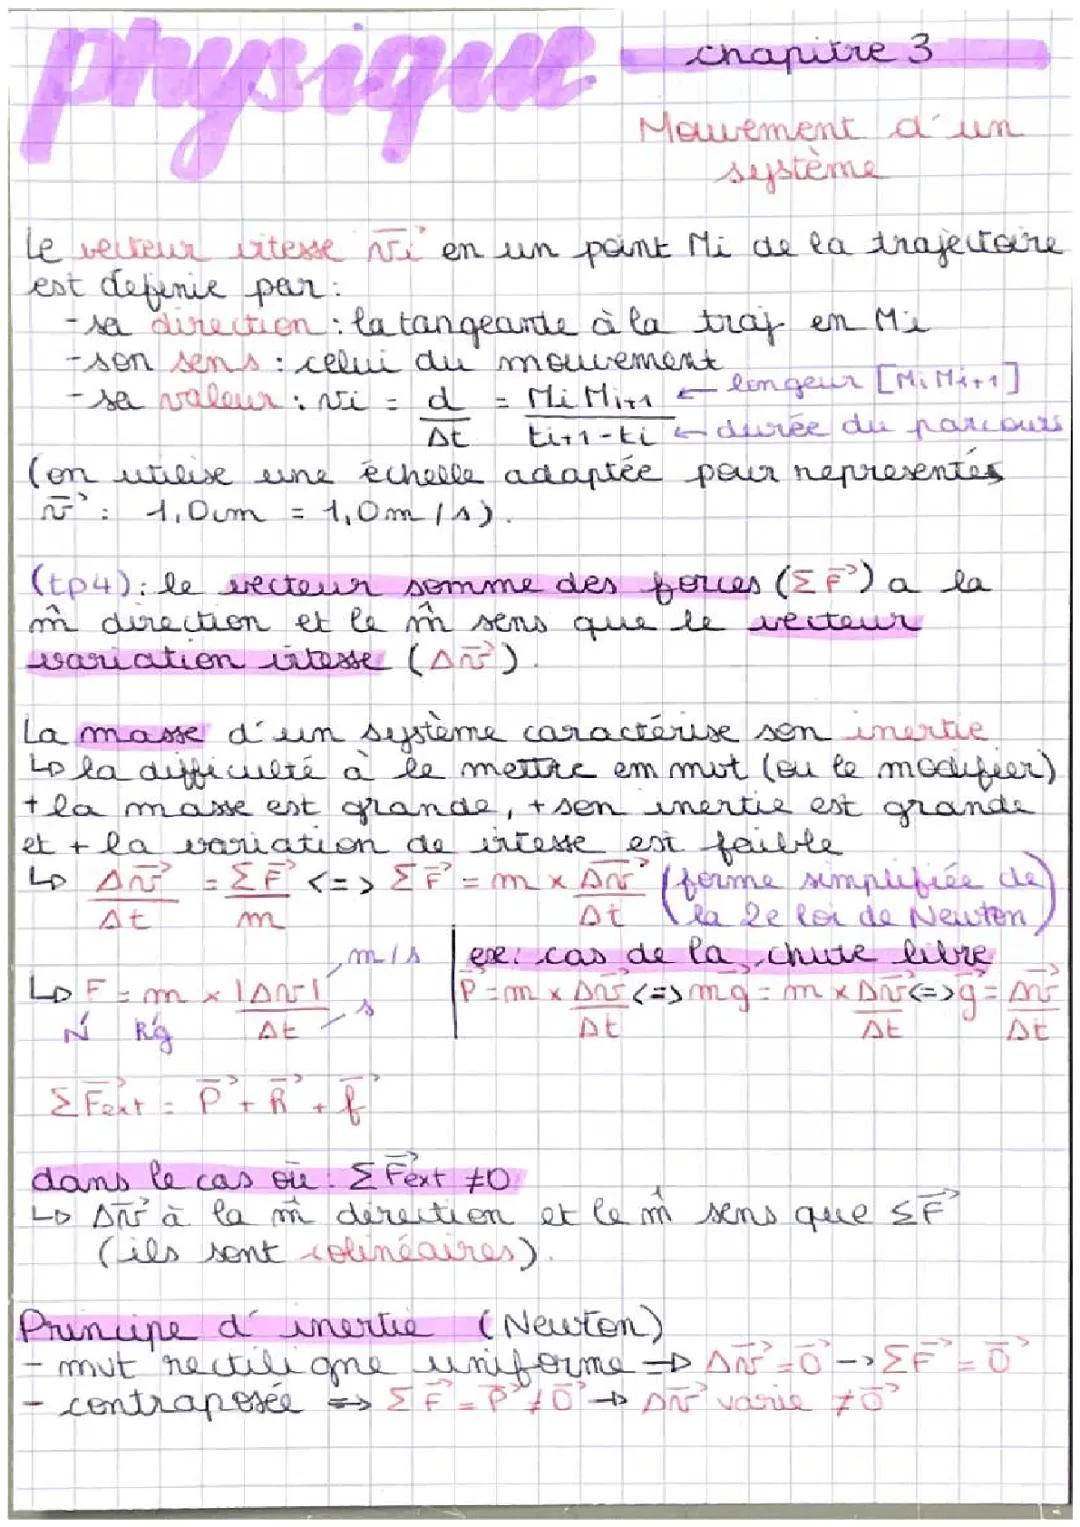 physique
chapitre 3
Mouvement d'un
système
le vecteur vitesse v⃗i en un point Mi de la trajectoire
est definie par:
- sa direction : la tangeante à la traj en Mi
- son sens : celui du mouvement
- sa valeur : vi = d/Δt = MiMi+1/ti+1-ti ← longeur [MiMi+1] ← durée du parcours
(on utilise une échelle adaptée pour representés
v⃗ : 1,0cm = 1,0m/s).
(tp4): le vecteur somme des forces (ΣF⃗) a la
m̂ direction et le m̂ sens que le vecteur
variation vitesse (Δv⃗).
La masse d'un système caractérise son inertie
↳ la difficulté à le mettre em mvt (ou le modifier)
+ la masse est grande, + son inertie est grande
et + la variation de vitesse est faible
↳ Δv⃗/Δt = ΣF⃗/m <=> ΣF⃗ = m x Δv⃗/Δt (forme simplifiée de la 2e loi de Newton)
↳ F = m x |Δv|/Δt
m/s
s
N Kg
ex: cas de la chute libre
P⃗ = m x Δv⃗/Δt <=> mg⃗ = m x Δv⃗/Δt <=> g⃗ = Δv⃗/Δt
ΣF⃗ext = P⃗ + R⃗ + f⃗
dans le cas où : ΣF⃗ext ≠0
↳ Δv⃗ à la m̂ direction et le m̂ sens que ΣF⃗
(ils sont colinéaires).
Principe d'inertie (Newton)
- mvt rectiligne uniforme → Δv⃗ = 0⃗ → ΣF⃗ = 0⃗
- contraposée => ΣF⃗ = P⃗ ≠ 0⃗ → Δv⃗ varie ≠ 0⃗